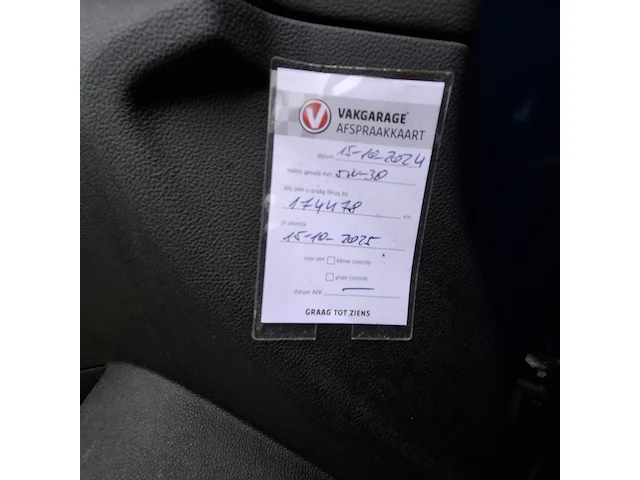 VAKGARAGE
AFSPRAAKKAART
datum 15-10-2024
motor gevuld met 5W-30
Wij zien u graag terug bij
174478 km
of uiterlijk
15-10-2025
voor een kleine controle
grote controle
datum APK —
GRAAG TOT ZIENS